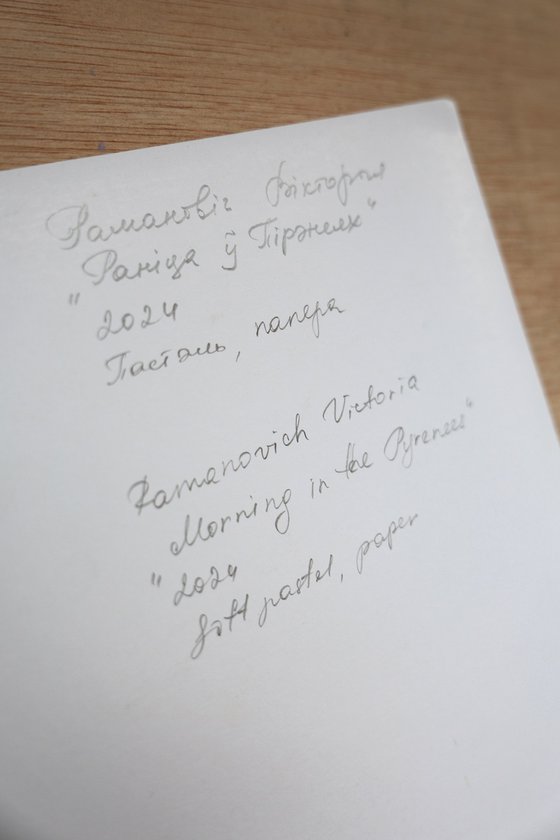 Рамановіч Вікторыя
"Раніца ў Пірэнеях"
2024
Пастэль, папера
Ramanovich Victoria
"Morning in the Pyrenees"
2024
Soft pastel, paper